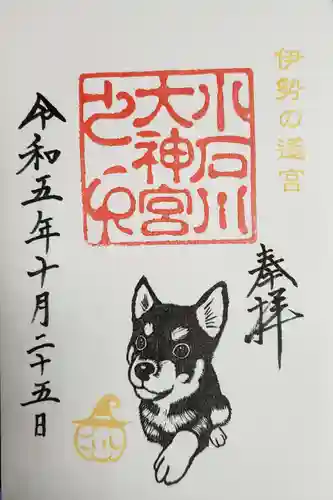 伊勢の遥宮
奉拝
小石川
大神宮
之印
令和五年十月二十五日
こいしかわ